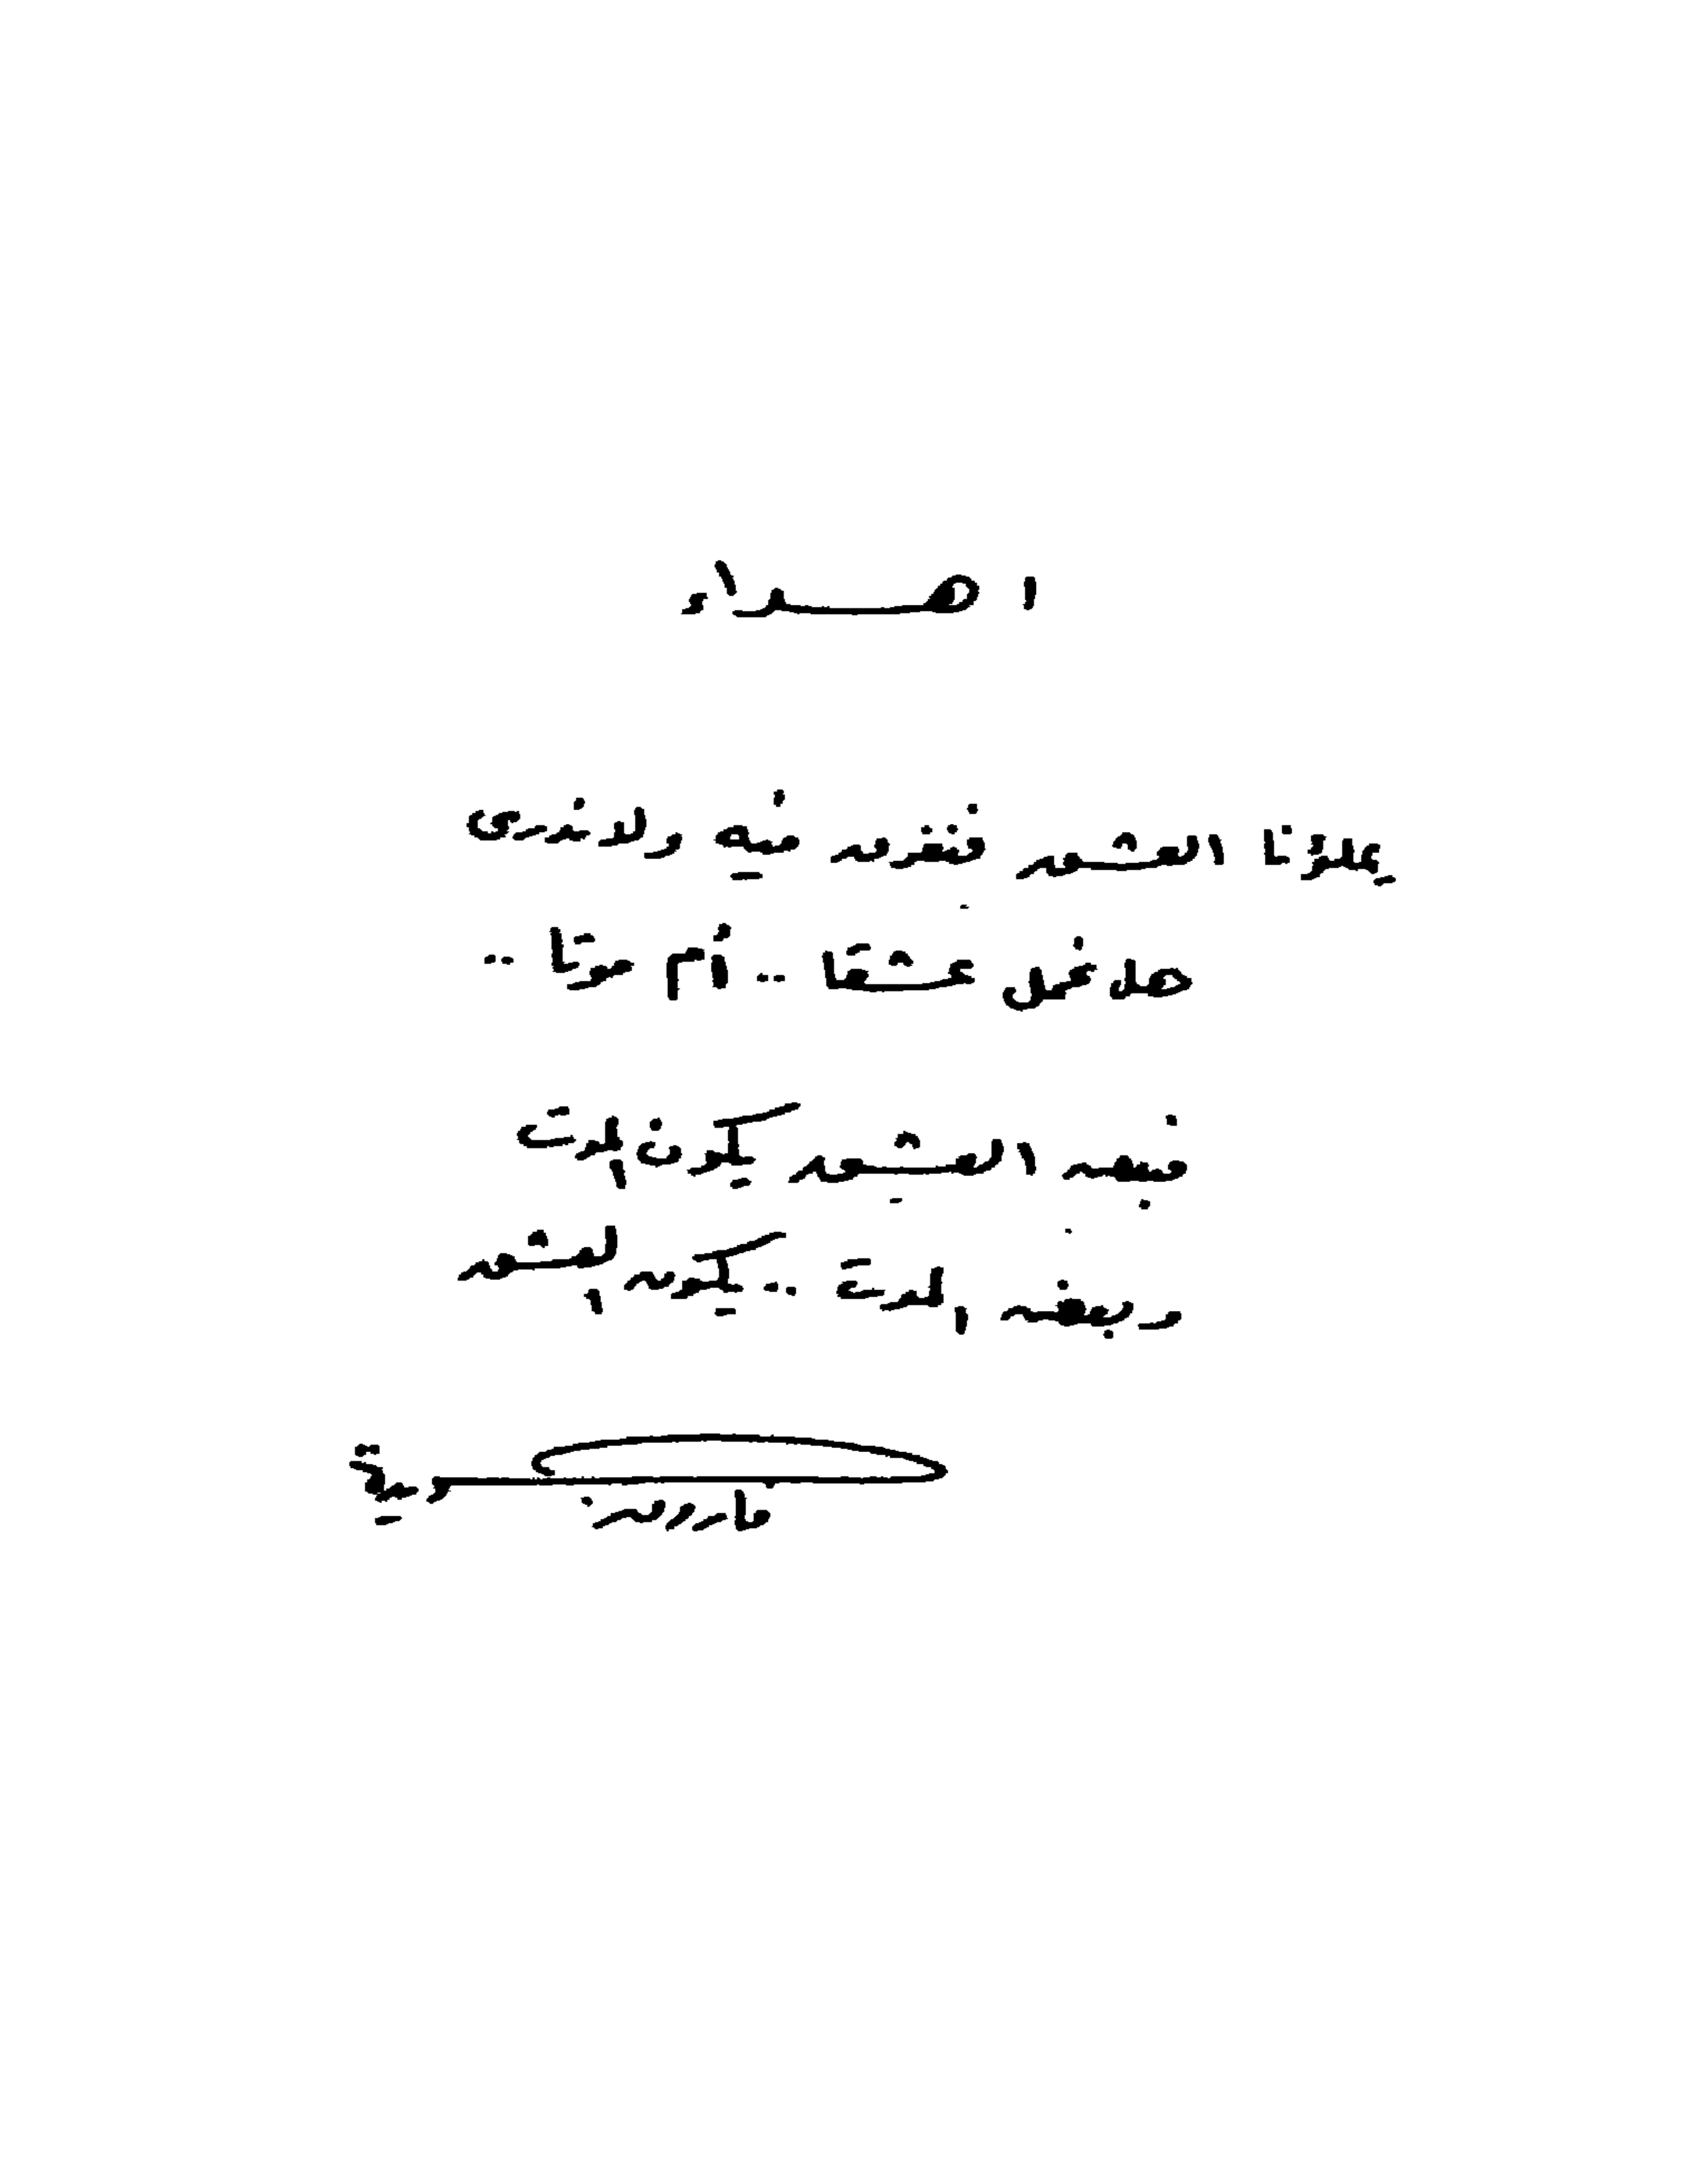 اهداء
يملؤنا العشق فنغرق فيه ولا ندرى
هل نحمل عشقا .. أم موتا ..
فبعض العشق يكون الموت
وبعض الموت .. يكون العشق
فاروق جويدة